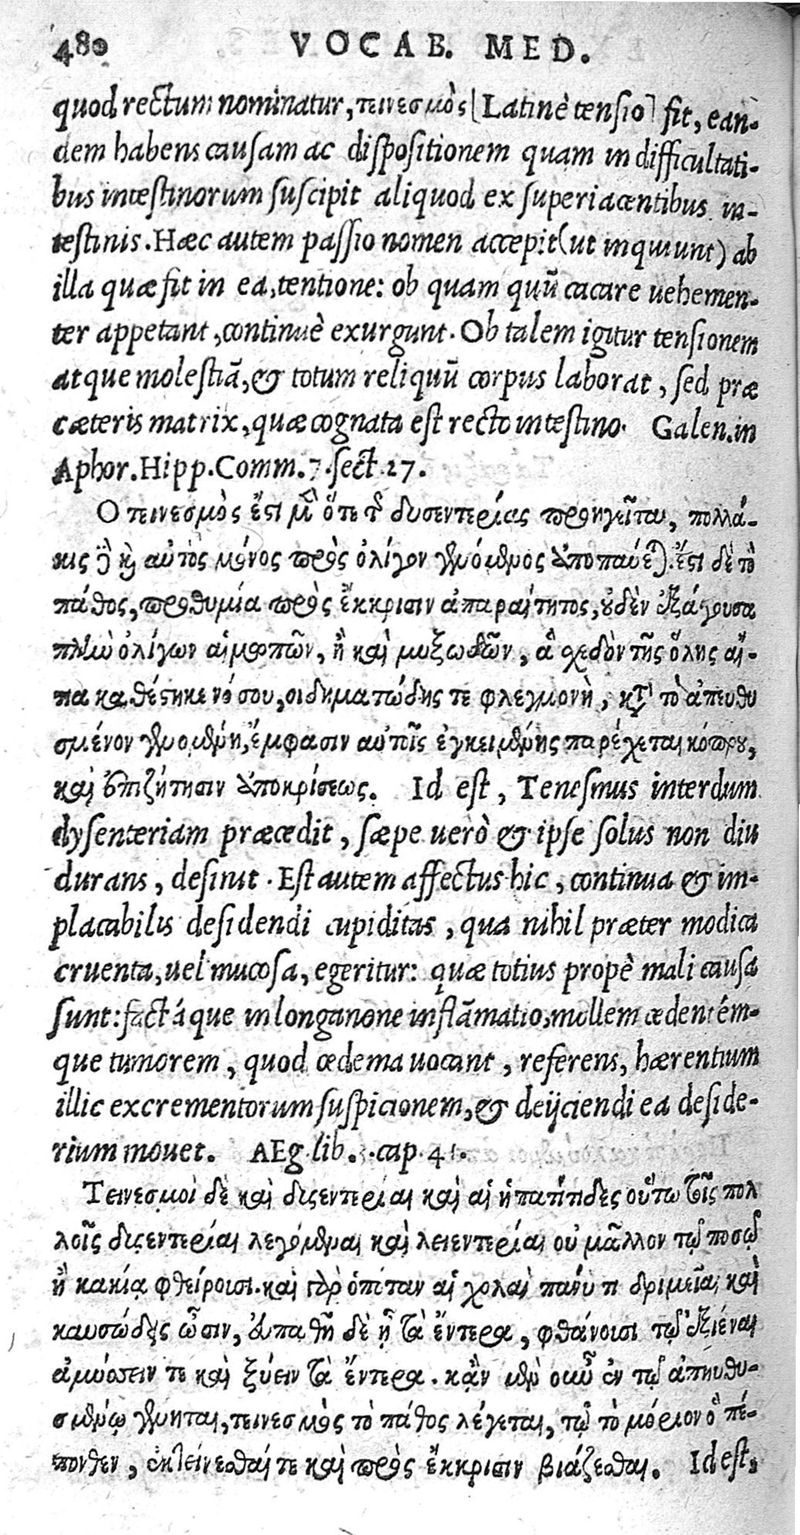 480 VOCAB. MED.
quod rectum nominatur, τεινεσμὸς [Latinè tensio] fit, ean-
dem habens causam ac dispositionem quam in difficultati-
bus intestinorum suscipit aliquod ex superiacentibus in-
testinis. Hæc autem passio nomen accepit (ut inquiunt) ab
illa quæ fit in ea, tentione: ob quam quũ cacare uehemen-
ter appetant, continuè exurgunt. Ob talem igitur tensionem
atque molestiã, & totum reliquũ corpus laborat, sed præ
cæteris matrix, quæ cognata est recto intestino. Galen. in
Aphor. Hipp. Comm. 7. sect. 27.
Ο τεινεσμὸς ἔστι μὲν ὅτε τ δυσεντερίας προηγεῖται, πολλά-
κις ἢ καὶ αὐτὸς μόνος πρὸς ὀλίγον γενόμενος ἀποπαύε). ἔστι δὲ τὸ
πάθος, προθυμία πρὸς ἔκκρισιν ἀπαραίτητος, οὐδὲν ἐξάγουσα
πλὴν ὀλίγων αἱματωπῶν, ἢ καὶ μυξωδῶν, ἃ σχεδὸν τῆς ὅλης αἴ-
τια καθέστηκε νόσου, οἰδηματώδης τε φλεγμονὴ, κατὰ τὸ ἀπευθυ
σμένον γενομένη, ἔμφασιν αὐτοῖς ἐγκειμένης παρέχεται κόπρου,
καὶ ἐπιζήτησιν ἀποκρίσεως. Id est, Tenesmus interdum
dysenteriam præcedit, sæpe uerò & ipse solus non diu
durans, desinit. Est autem affectus hic, continua & im-
placabilis desidendi cupiditas, qua nihil præter modica
cruenta, uel mucosa, egeritur: quæ totius propè mali causa
sunt: factáque in longanone inflãmatio, mollem cedentém-
que tumorem, quod œdema uocant, referens, hærentium
illic excrementorum suspicionem, & deijciendi ea deside-
rium mouet. AEg. lib. 3. cap. 41.
Τεινεσμοὶ δὲ καὶ δισεντερίαι καὶ αἱ ἡπατίτιδες οὕτω τοῖς πολ
λοῖς δισεντερίαι λεγόμεναι καὶ λειεντερίαι οὐ μᾶλλον τῷ ποσῷ
ἢ κακίᾳ φθείρουσι. καὶ γὰρ ὁπόταν αἱ χολαὶ πάνυ τι δριμεῖαι καὶ
καυσώδεις ὦσιν, ἀπαθῆ δὲ ᾖ τὰ ἔντερα, φθάνουσι τῷ ἐξιέναι
ἀμύσσειν τε καὶ ξύειν τὰ ἔντερα. κἂν μὲν οὖν ἐν τῷ ἀπηυθυ-
σμένῳ γένηται, τεινεσμὸς τὸ πάθος λέγεται, τῷ τὸ μόριον ὃ πέ-
πονθεν, ἐκτείνεσθαί τε καὶ πρὸς ἔκκρισιν βιάζεσθαι. Id est,